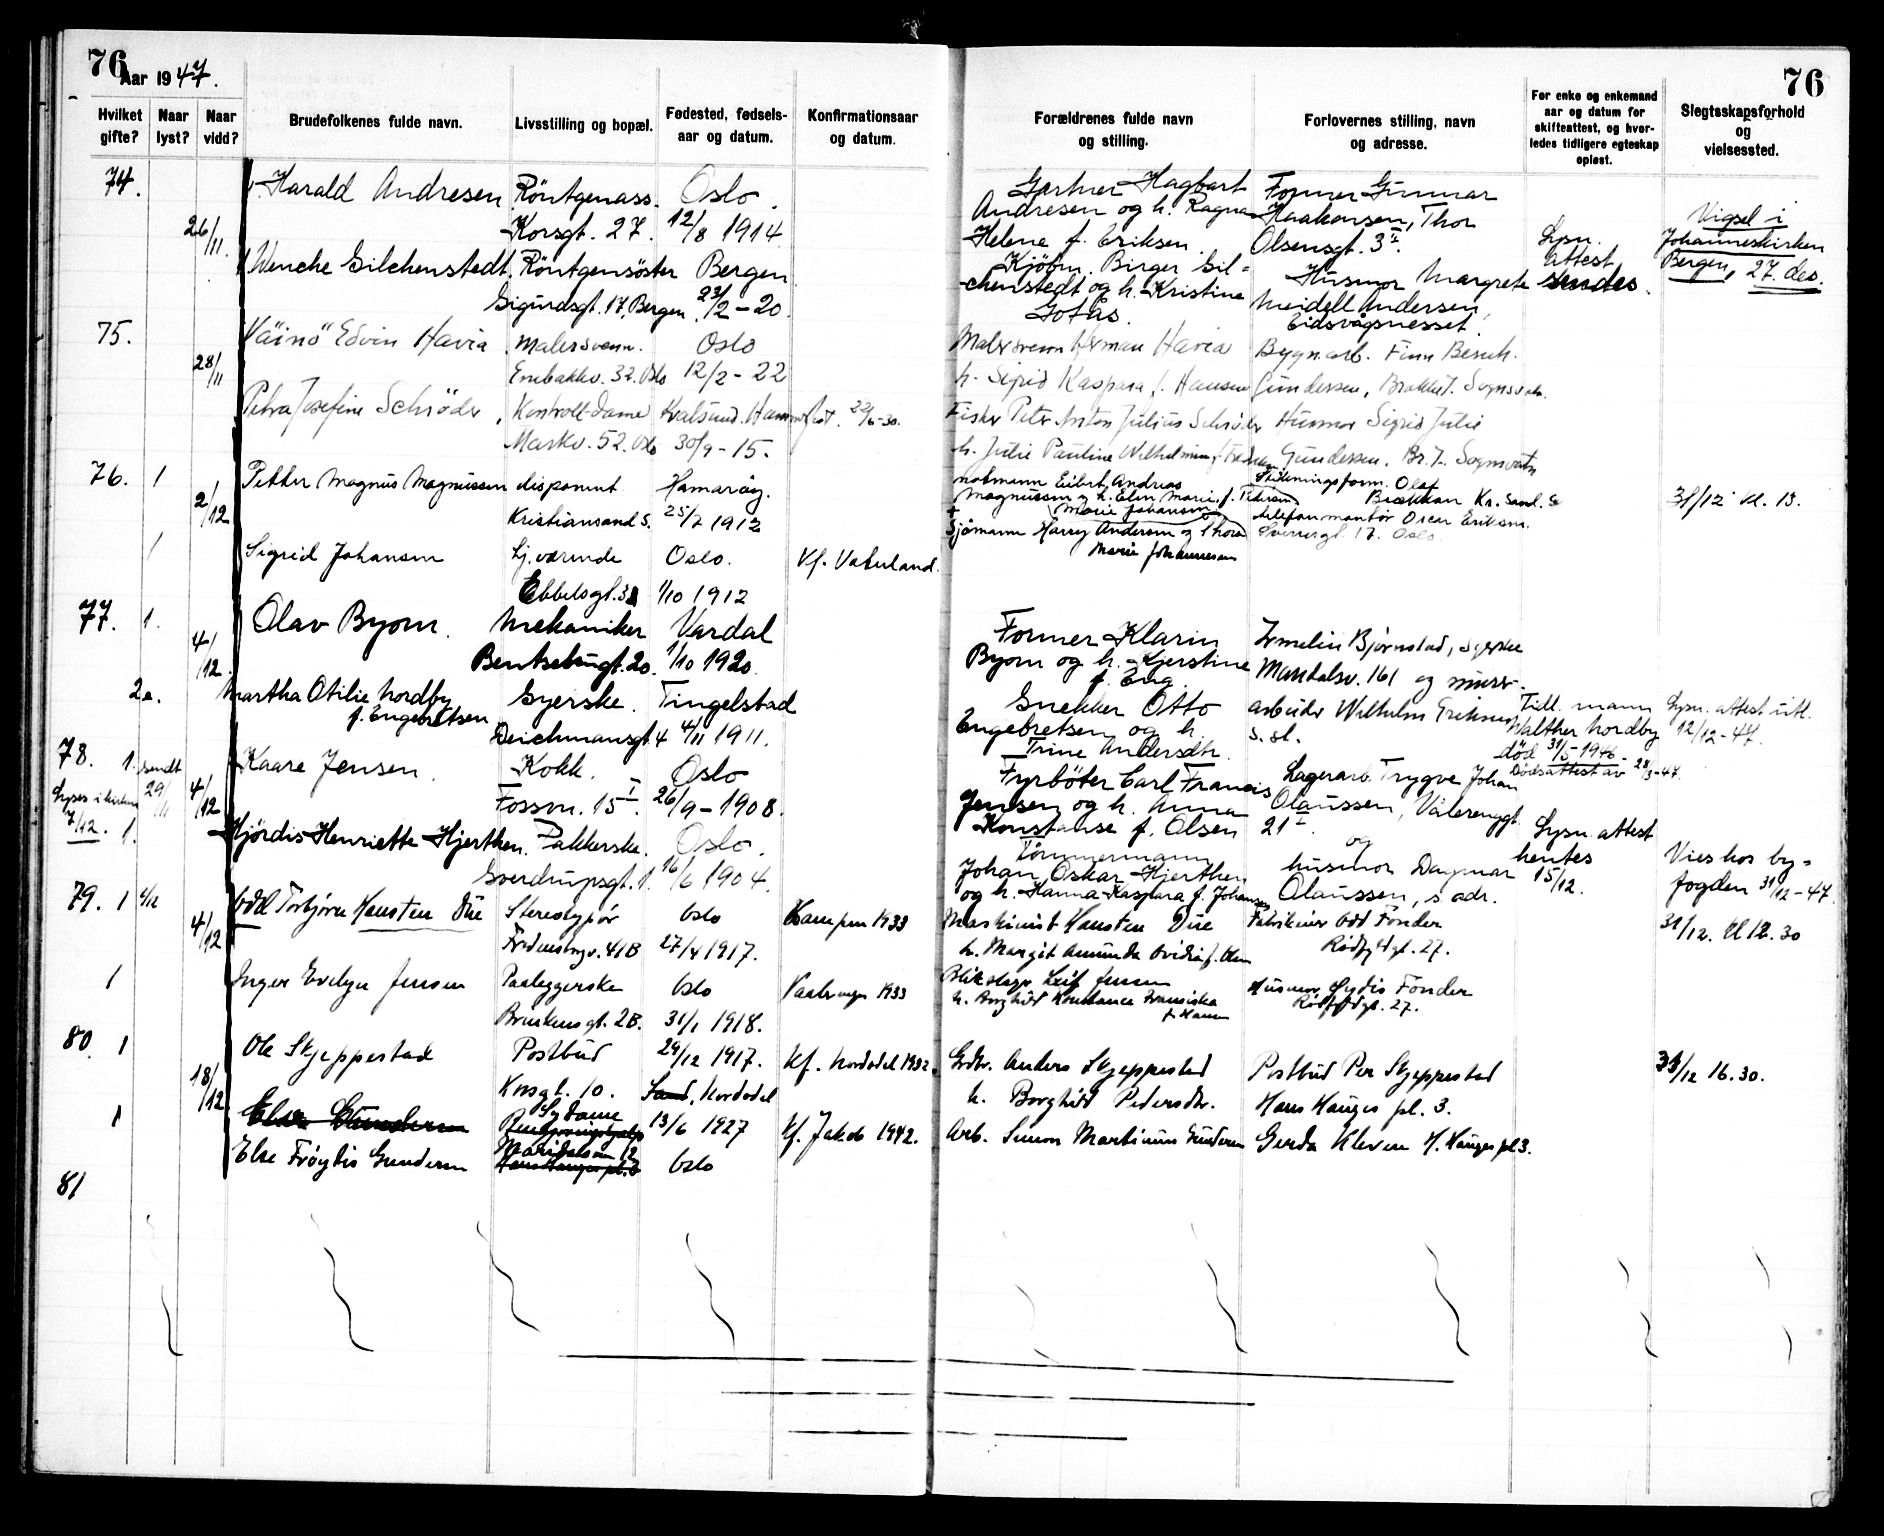 76
Aar 1947.
Hvilket gifte?
Naar lyst?
Naar vidd?
Brudefolkenes fulde navn.
Livsstilling og bopæl.
Fødested, fødsels-
aar og datum.
Konfirmationsaar
og datum.
76
Forældrenes fulde navn
og stilling.
Forlovernes stilling, navn
og adresse.
For enke og enkemand
aar og datum for
skifteattest, og hvor-
ledes tidligere egteskap
opløst.
Slegtsskapsforhold
og
vielsessted.
74.
26/11.
Harald Andresen
Röntgenass.
Korsgt. 27.
Oslo.
12/8 1914
Gartner Hagbart
Andresen og h. Ragna
Helene f. Eriksen.
Former Gunnar
Haakonsen, Thor
Olsensgt. 3 II.
Lysn.
attest
sendes.
Vigsel i
Johanneskirken
Bergen, 27. des.
Wenche Gilchenstedt.
Röntgensöster
Sigurdsgt. 17, Bergen.
Bergen
23/2-20.
Kjöbm. Birger Gil-
chenstedt og h. Kristine
Gotås.
Husmor Margrete
Meidell Andersen,
Eidsvågsnesset.
75.
28/11
Väinö Edvin Havia
Malersvenn.
Enebakkv. 32. Oslo
Oslo
12/2-22
Malersvenn Herman Havia
h. Sigrid Kaspara f. Hansen
Bygn.arb. Finn
Gundersen, Sognsvatn.
Petra Josefine Schröder,
Kontroll-dame
Markv. 52. Oslo
Kvalsund. Hammerfest.
30/9-15.
22/6-30.
Fisker Peter Anton Julius Schröder
h. Julie Pauline Wilhelmine f.
Husmor Sigrid Julie
Gundersen. Br. 7. Sognsvatn
76. 1
2/12
Petter Magnus Magnussen
disponent
Kristiansand S.
Hamarøy.
25/7 1912
notmann Eibert Andreas
Magnussen og h. Elen Marie f. Petersen
Olaf
Brækkan Kr. Sand. S
31/12 kl. 13.
1
Sigrid Johansen
hj. værende
Ebbelsgt. 3
Oslo.
1/10 1912
Kf. Vaterland.
Marie Johansen
Sjømann Harry Andersen og Thora
Marie Johannesen
telefonmontør Oscar Eriksen.
Sverresgt. 17. Oslo.
77. 1.
4/12.
Olav Byom.
Mekaniker
Bentsebrugt. 20.
Vardal
1/10 1920.
Former Klarin
Byom og h. Kjerstine
f. Eng.
Irmelin Bjørnstad, syerske
Maridalsv. 161 og murer-
2.
Martha Otilie Nordby
f. Engebretsen
Syerske.
Deichmansgt 4
Tingelstad
4/11 1911.
Snekker Otto
Engebretsen og h.
Trine Andersdtr.
arbeider Wilhelm Eriksen
s. st.
Tidl. mann
Walther Nordby
död 31/5-1946-
Dødsattest av 28/3-47.
Lysn. attest utl.
12/12-47.
78. 1. sendt
29/11
4/12
Lyses i kirken
7/12. 1.
Kaare Jensen.
Kokk.
Fossvn. 15 I.
Oslo
26/9-1908.
Fyrböter Carl Francis
Jensen og h. Anna
Konstanse f. Olsen
Lagerarb. Trygve Johan
Olaussen, Vålerenggt.
21 I.
og
Hjördis Henriette Hjerthen.
Pakkerske.
Sverdrupsgt. 1.
Oslo.
16/6 1904.
Tömmermann
Johan Oskar Hjerthen
og h. Hanna Kaspara f. Johansen
husmor Dagmar
Olaussen, s. adr.
Lysn. attest
hentes
15/12.
Vies hos by-
fogden 31/12-47.
79. 1 4/12
4/12
Odd Torbjørn Hansten Due
Stereotypør
41B
Oslo
27/4 1917.
Kampen 1933
Maskinist Hansten Due
h. Margit Amunda Ovidia f. Olsen
Fabrikeier Odd Fonder
Rødfydgt. 27.
31/12. kl 12.30
1
Inger Evelyn Jensen
Paaleggerske
Brinkensgt. 2B.
Oslo
31/1 1918.
Vaalerengen 1933
Blikslager Leif Jensen
h. Borghild Konstance Fransiska
f. Hansen
Husmor Gydis Fonder
Rødfydgt. 27.
80. 1
18/12
Ole Skjeppestad
Postbud
Korsgt. 10.
29/12 1917.
Sand, Nordodal
Kf. Nordodal 1932.
Grdbr. Anders Skjeppestad
h. Borghild Pedersdtr.
Postbud Per Skjeppestad
Hans Hauges pl. 3.
31/12 16.30.
1
Else Gundersen
Else Frøydis Gundersen
Sydame
Maridalsvn 12
13/6 1927
Oslo
Kf. Jakob 1942.
Arb. Simon Martinius Gundersen
Gerda Kleven H. Hauges pl 3.
81